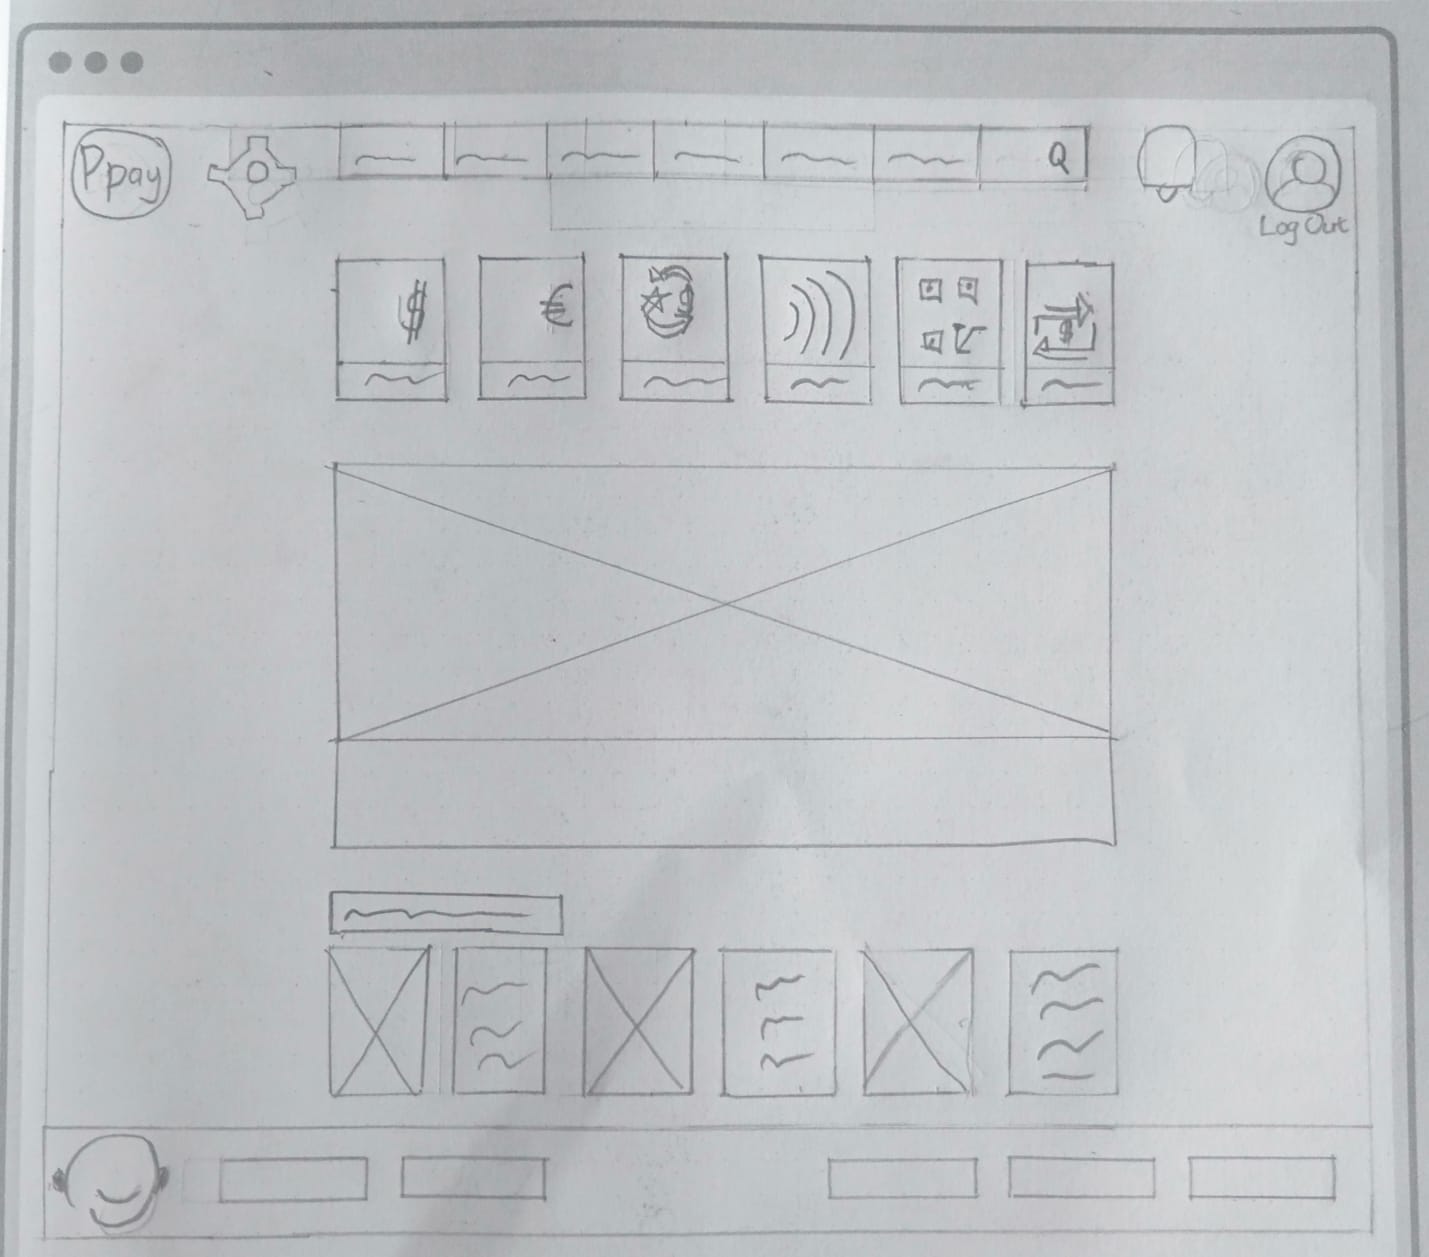 Ppay
Q
Log Out
$
€
$
$